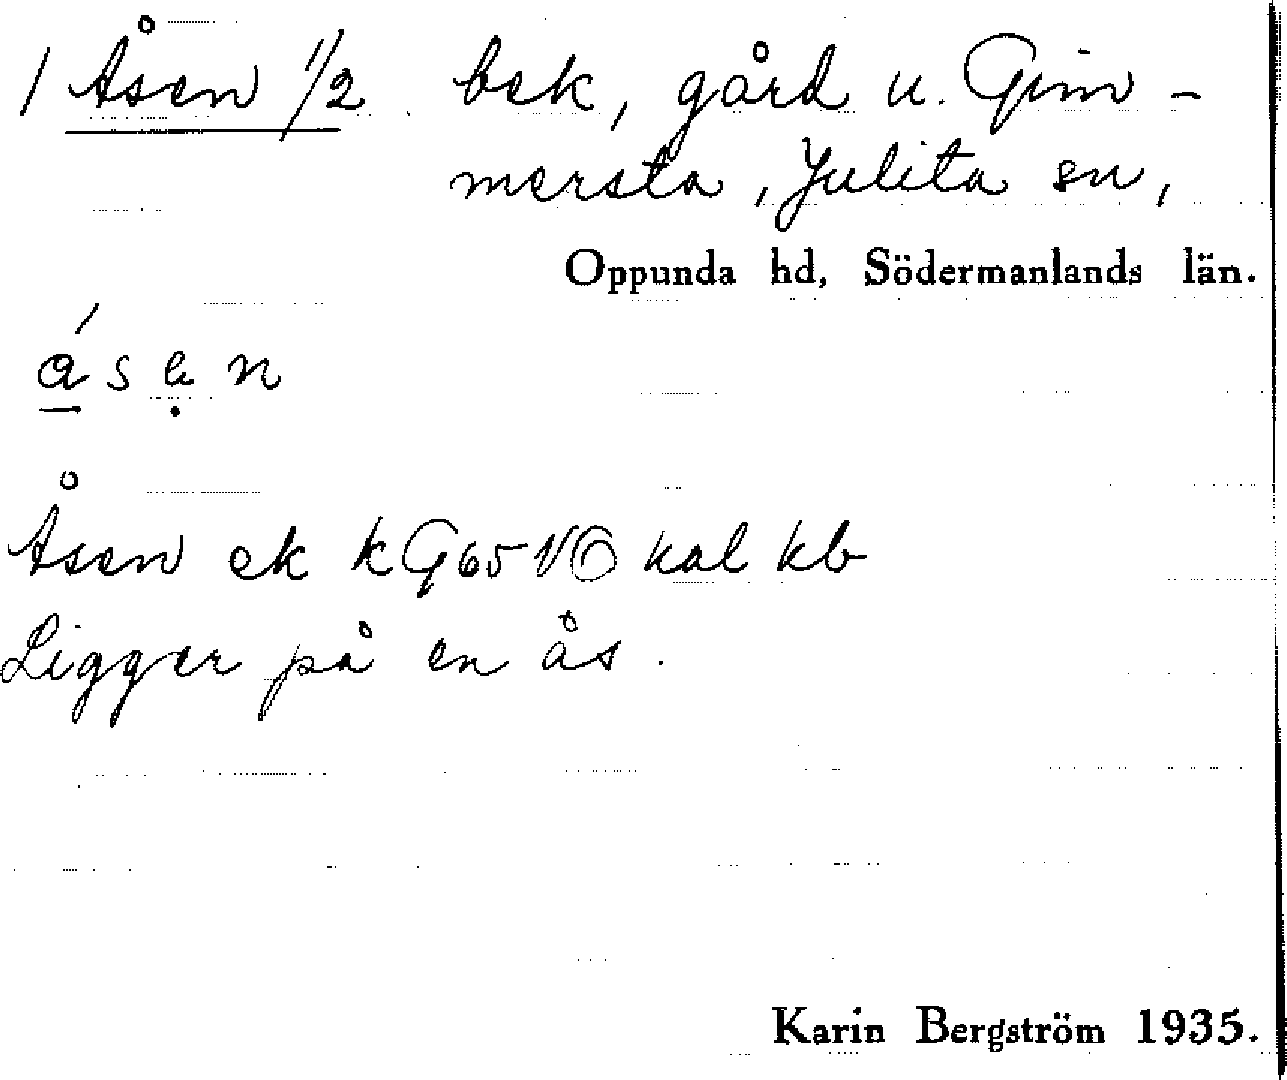 1 Åsen 1/2 bsk, gård u. Gim-
mersta, Julita sn,
Oppunda hd, Södermanlands län.
åsẹn
Åsen ek k G65 VÖ kal kb
Ligger på en ås.
Karin Bergström 1935.